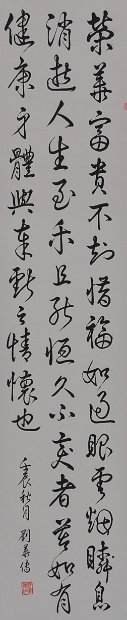 榮華富貴不知惜福如過眼雲烟瞬息
消逝人生至樂且能恆久不爽者莫如有
健康身體與奉獻之情懷也
壬辰秋月劉